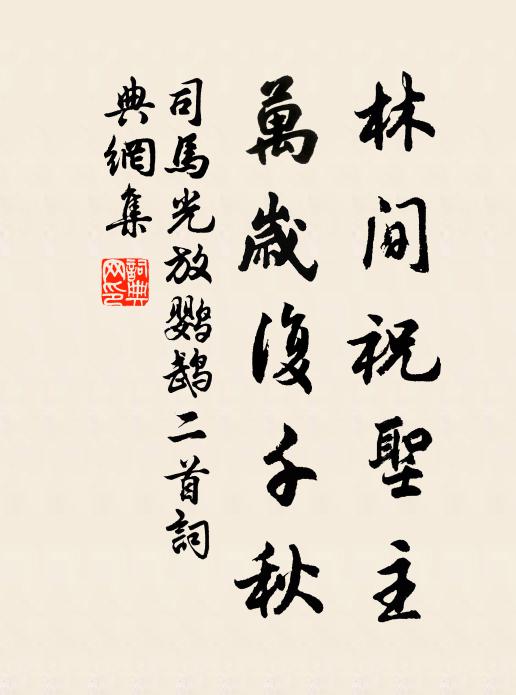 林間祝聖主
萬歲復千秋
司馬光放鸚鵡二首詞
典網集
詞典網印